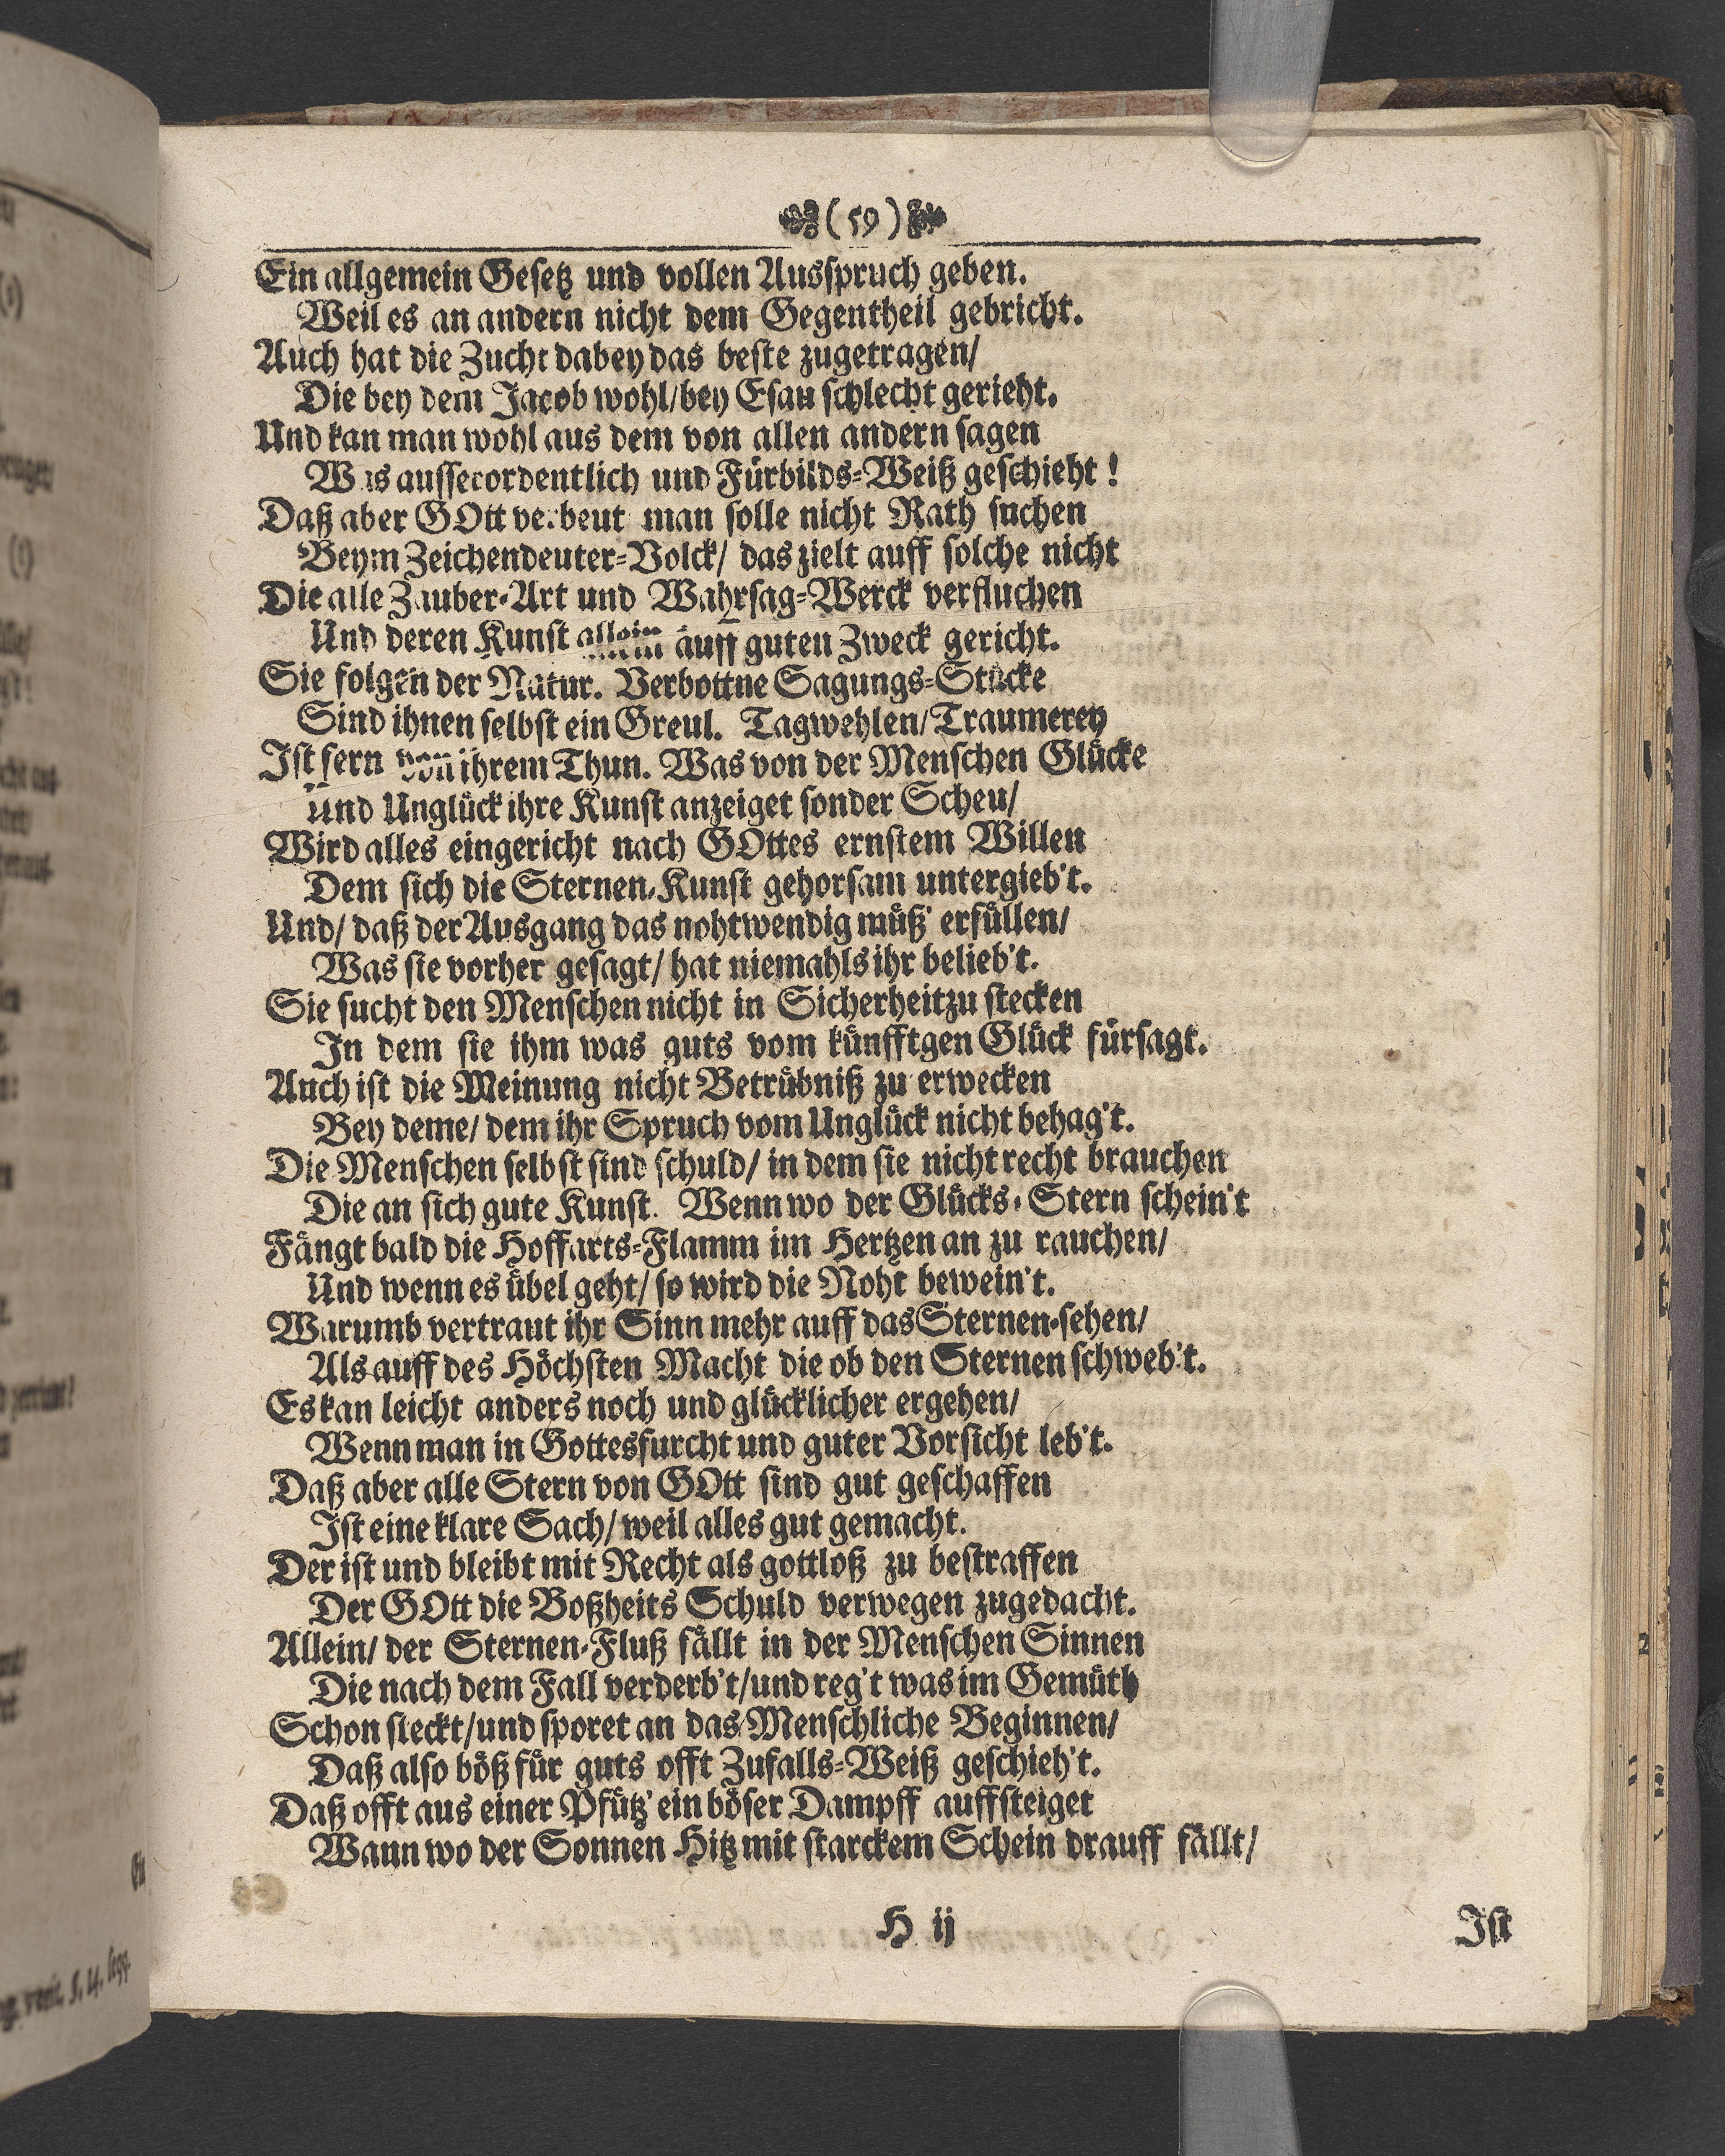 (59)
Ein allgemein Gesetz und vollen Ausspruch geben.
Weil es an andern nicht dem Gegentheil gebricht.
Auch hat die Zucht dabey das beste zugetragen/
Die bey dem Jacob wohl/bey Esau schlecht gerieht.
Und kan man wohl aus dem von allen andern sagen
Was ausserordentlich und Fürbilds-Weiß geschieht!
Daß aber GOtt verbeut man solle nicht Rath suchen
Beym Zeichendeuter-Volck/ das zielt auff solche nicht
Die alle Zauber-Art und Wahrsag-Werck verfluchen
Und deren Kunst allein auff guten Zweck gericht.
Sie folgen der Natur. Verbottne Sagungs-Stücke
Sind ihnen selbst ein Greul. Tagwehlen/Traumerey
Ist fern von ihrem Thun. Was von der Menschen Glücke
Und Unglück ihre Kunst anzeiget sonder Scheu/
Wird alles eingericht nach GOttes ernstem Willen
Dem sich die Sternen-Kunst gehorsam untergieb't.
Und/ daß der Ausgang das nohtwendig müß' erfüllen/
Was sie vorher gesagt/ hat niemahls ihr belieb't.
Sie sucht den Menschen nicht in Sicherheit zu stecken
In dem sie ihm was guts vom künfftgen Glück fürsagt.
Auch ist die Meinung nicht Betrübniß zu erwecken
Bey deme/ dem ihr Spruch vom Unglück nicht behag't.
Die Menschen selbst sind schuld/ in dem sie nicht recht brauchen
Die an sich gute Kunst. Wenn wo der Glücks-Stern schein't
Fängt bald die Hoffarts-Flamm im Hertzen an zu rauchen/
Und wenn es übel geht/ so wird die Noht bewein't.
Warumb vertraut ihr Sinn mehr auff das Sternen-sehen/
Als auff des Höchsten Macht die ob den Sternen schweb't.
Es kan leicht anders noch und glücklicher ergehen/
Wenn man in Gottesfurcht und guter Vorsicht leb't.
Daß aber alle Stern von GOtt sind gut geschaffen
Ist eine klare Sach/ weil alles gut gemacht.
Der ist und bleibt mit Recht als gottloß zu bestraffen
Der GOtt die Boßheits Schuld verwegen zugedacht.
Allein/ der Sternen-Fluß fällt in der Menschen Sinnen
Die nach dem Fall verderb't/und reg't was im Gemüth
Schon steckt/und sporet an das Menschliche Beginnen/
Daß also böß für guts offt Zufalls-Weiß geschieh't.
Daß offt aus einer Pfütz' ein böser Dampff auffsteiget
Wann wo der Sonnen Hitz mit starckem Schein drauff fällt/
H ij
Ist